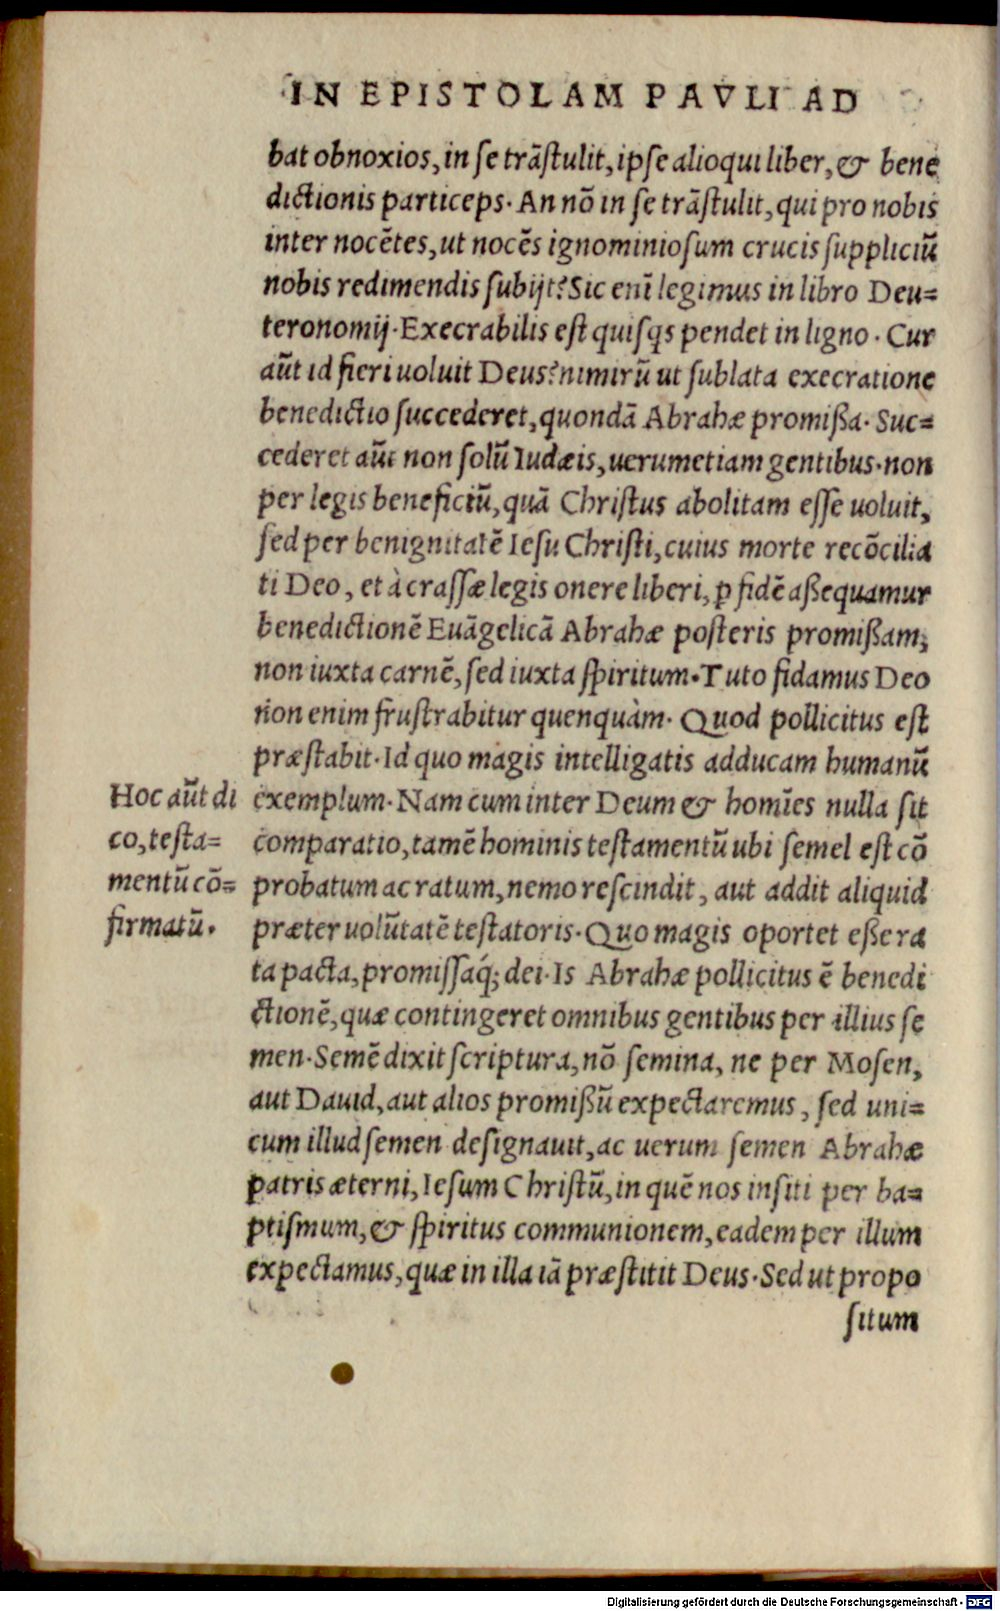 IN EPISTOLAM PAVLI AD
bat obnoxios, in se trãstulit, ipse alioqui liber, & bene
dictionis particeps. An nõ in se trãstulit, qui pro nobis
inter nocẽtes, ut nocẽs ignominiosum crucis suppliciũ
nobis redimendis subijt? Sic enĩ legimus in libro Deu=
teronomij. Execrabilis est quisqs pendet in ligno. Cur
aũt id fieri uoluit Deus? nimirũ ut sublata execratione
benedictio succederet, quondã Abrahæ promißa. Suc=
cederet aũt non solũ Iudæis, uerumetiam gentibus. non
per legis beneficiũ, quã Christus abolitam esse uoluit,
sed per benignitatẽ Iesu Christi, cuius morte recõcilia
ti Deo, et à crassæ legis onere liberi, p fidẽ aßequamur
benedictionẽ Euãgelicã Abrahæ posteris promißam,
non iuxta carnẽ, sed iuxta spiritum. Tuto fidamus Deo
non enim frustrabitur quenquàm. Quod pollicitus est
præstabit. Id quo magis intelligatis adducam humanũ
Hoc aũt di
co, testa=
mentũ cõ=
firmatũ.
exemplum. Nam cum inter Deum & homĩes nulla sit
comparatio, tamẽ hominis testamentũ ubi semel est cõ
probatum ac ratum, nemo rescindit, aut addit aliquid
præter uolũtatẽ testatoris. Quo magis oportet eße ra
ta pacta, promissaq́; dei. Is Abrahæ pollicitus ẽ benedi
ctionẽ, quæ contingeret omnibus gentibus per illius se
men. Semẽ dixit scriptura, nõ semina, ne per Mosen,
aut Dauid, aut alios promißũ expectaremus, sed uni=
cum illud semen designauit, ac uerum semen Abrahæ
patris æterni, Iesum Christũ, in quẽ nos insiti per ba=
ptismum, & spiritus communionem, eadem per illum
expectamus, quæ in illa iã præstitit Deus. Sed ut propo
situm
Digitalisierung gefördert durch die Deutsche Forschungsgemeinschaft - DFG